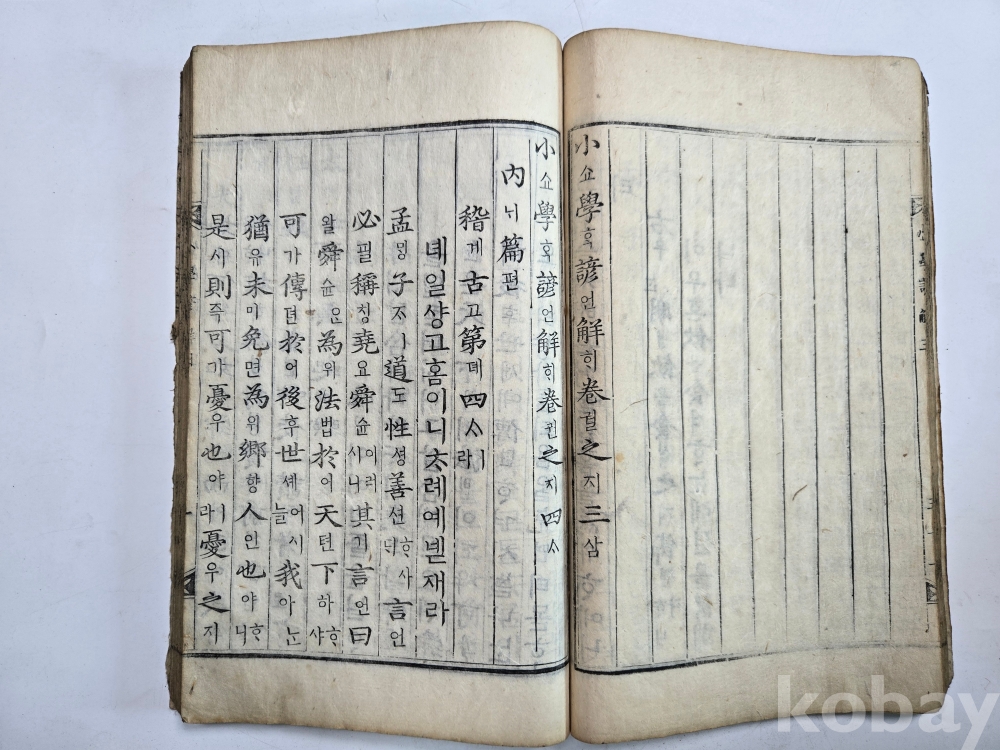 小쇼學ᄒᆞᆨ諺언解ᄒᆡ卷권之지三삼
小쇼學ᄒᆞᆨ諺언解ᄒᆡ卷권之지四ᄉᆞ
內ᄂᆡ篇편
稽계古고第뎨四ᄉᆞㅣ라
녜일샹고홈이니ᄎᆞ례예녣재라
孟ᄆᆡᆼ子ᄌᆞㅣ道도性셩善션ᄒᆞ샤ᄃᆡ言언
必필稱칭堯요舜슌이러시니其기言언曰
왈舜슌은為위法법於어天텬下하ᄒᆞ샤
可가傳뎐於어後후世셰어시늘我아ᄂᆞᆫ
猶유未미免면為위鄉향人인也야ᄒᆞ니
是시則즉可가憂우也야ㅣ라憂우之지
kobay